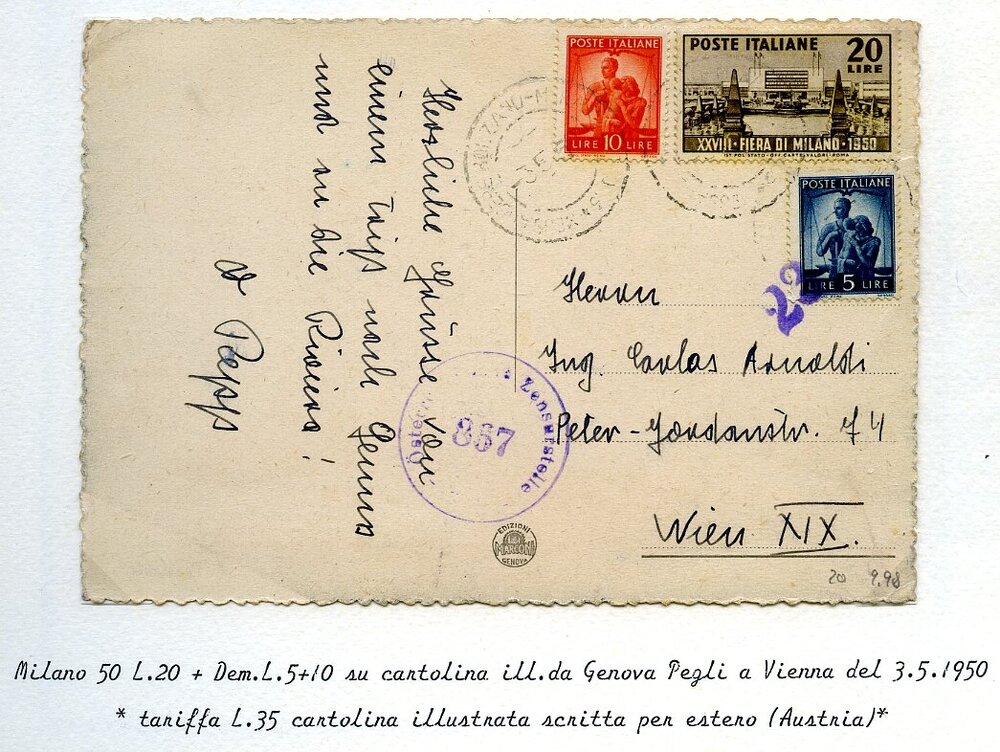 POSTE ITALIANE
LIRE 10 LIRE
POSTE ITALIANE 20
LIRE
XXVIII · FIERA DI MILANO · 1950
IST. POL. STATO - OFF. CARTE VALORI - ROMA
POSTE ITALIANE
LIRE 5 LIRE
3.5
Herzliche Grüsse von
einem Trip nach Genua
und an die Riviera!
Pepp
Herrn
Ing. Carlos Arnoldi
Peter-Jordanstr. 74
Wien XIX.
Zensurstelle
867
EDIZIONI
MARCONI
GENOVA
20 9.98
Milano 50 L.20 + Dem.L.5+10 su cartolina ill.da Genova Pegli a Vienna del 3.5.1950
* tariffa L.35 cartolina illustrata scritta per estero (Austria)*